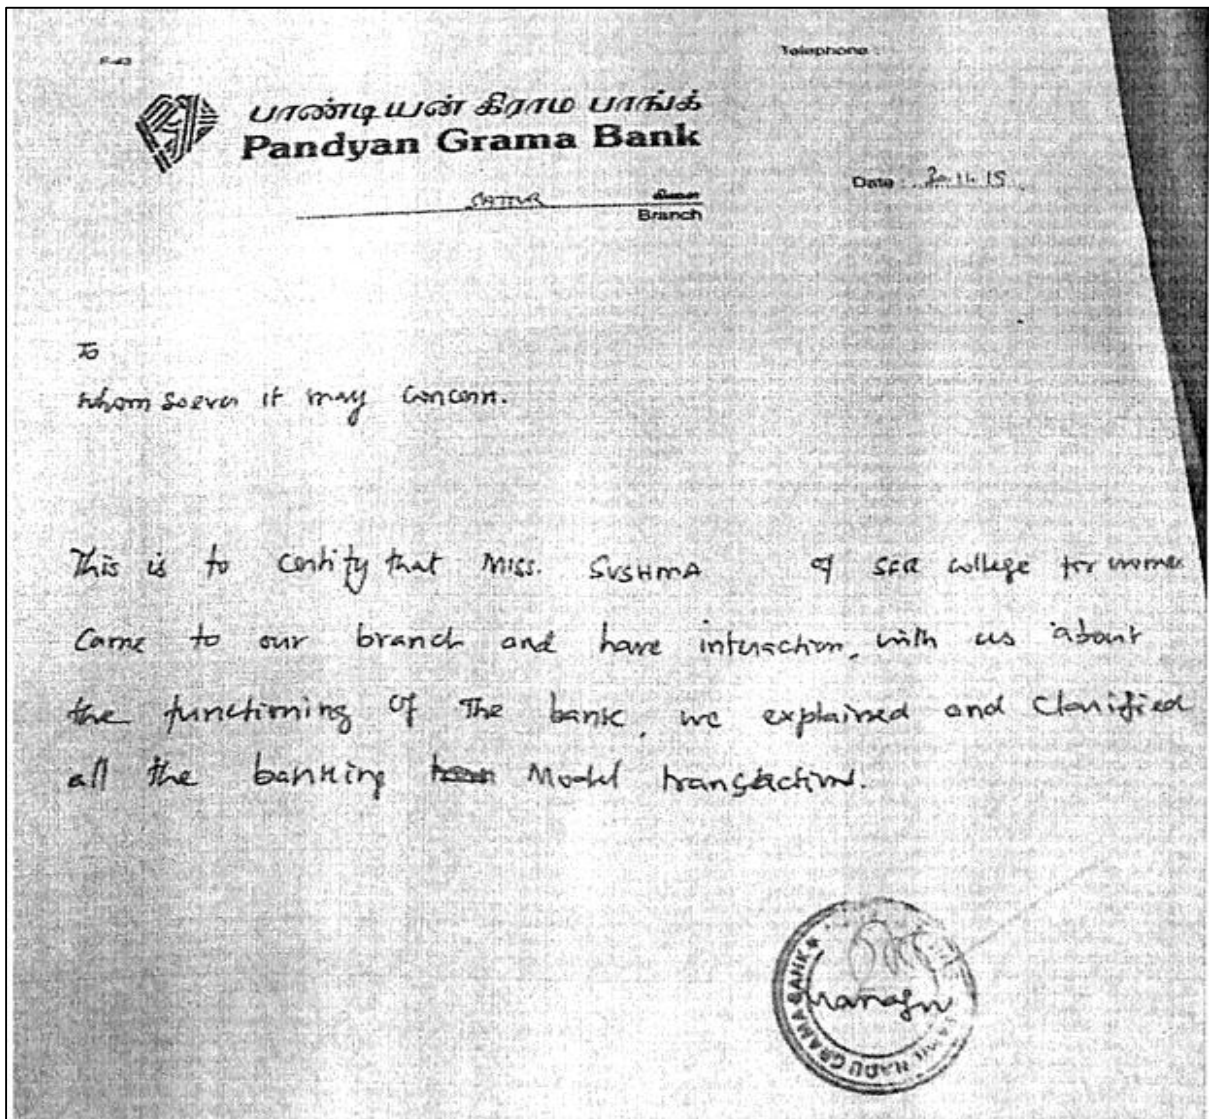 F-43
Telephone :
பாண்டியன் கிராம பாங்க்
Pandyan Grama Bank
Date : 30.11.15
SATTUR கிளை
Branch
To
whom soever it may Concern.
This is to certify that Miss. SUSHMA of SFR College for women
Came to our branch and have interaction, with us about
the functioning of The bank, we explained and Clarified
all the banking Model transactions.
Manager
GRAMA BANK